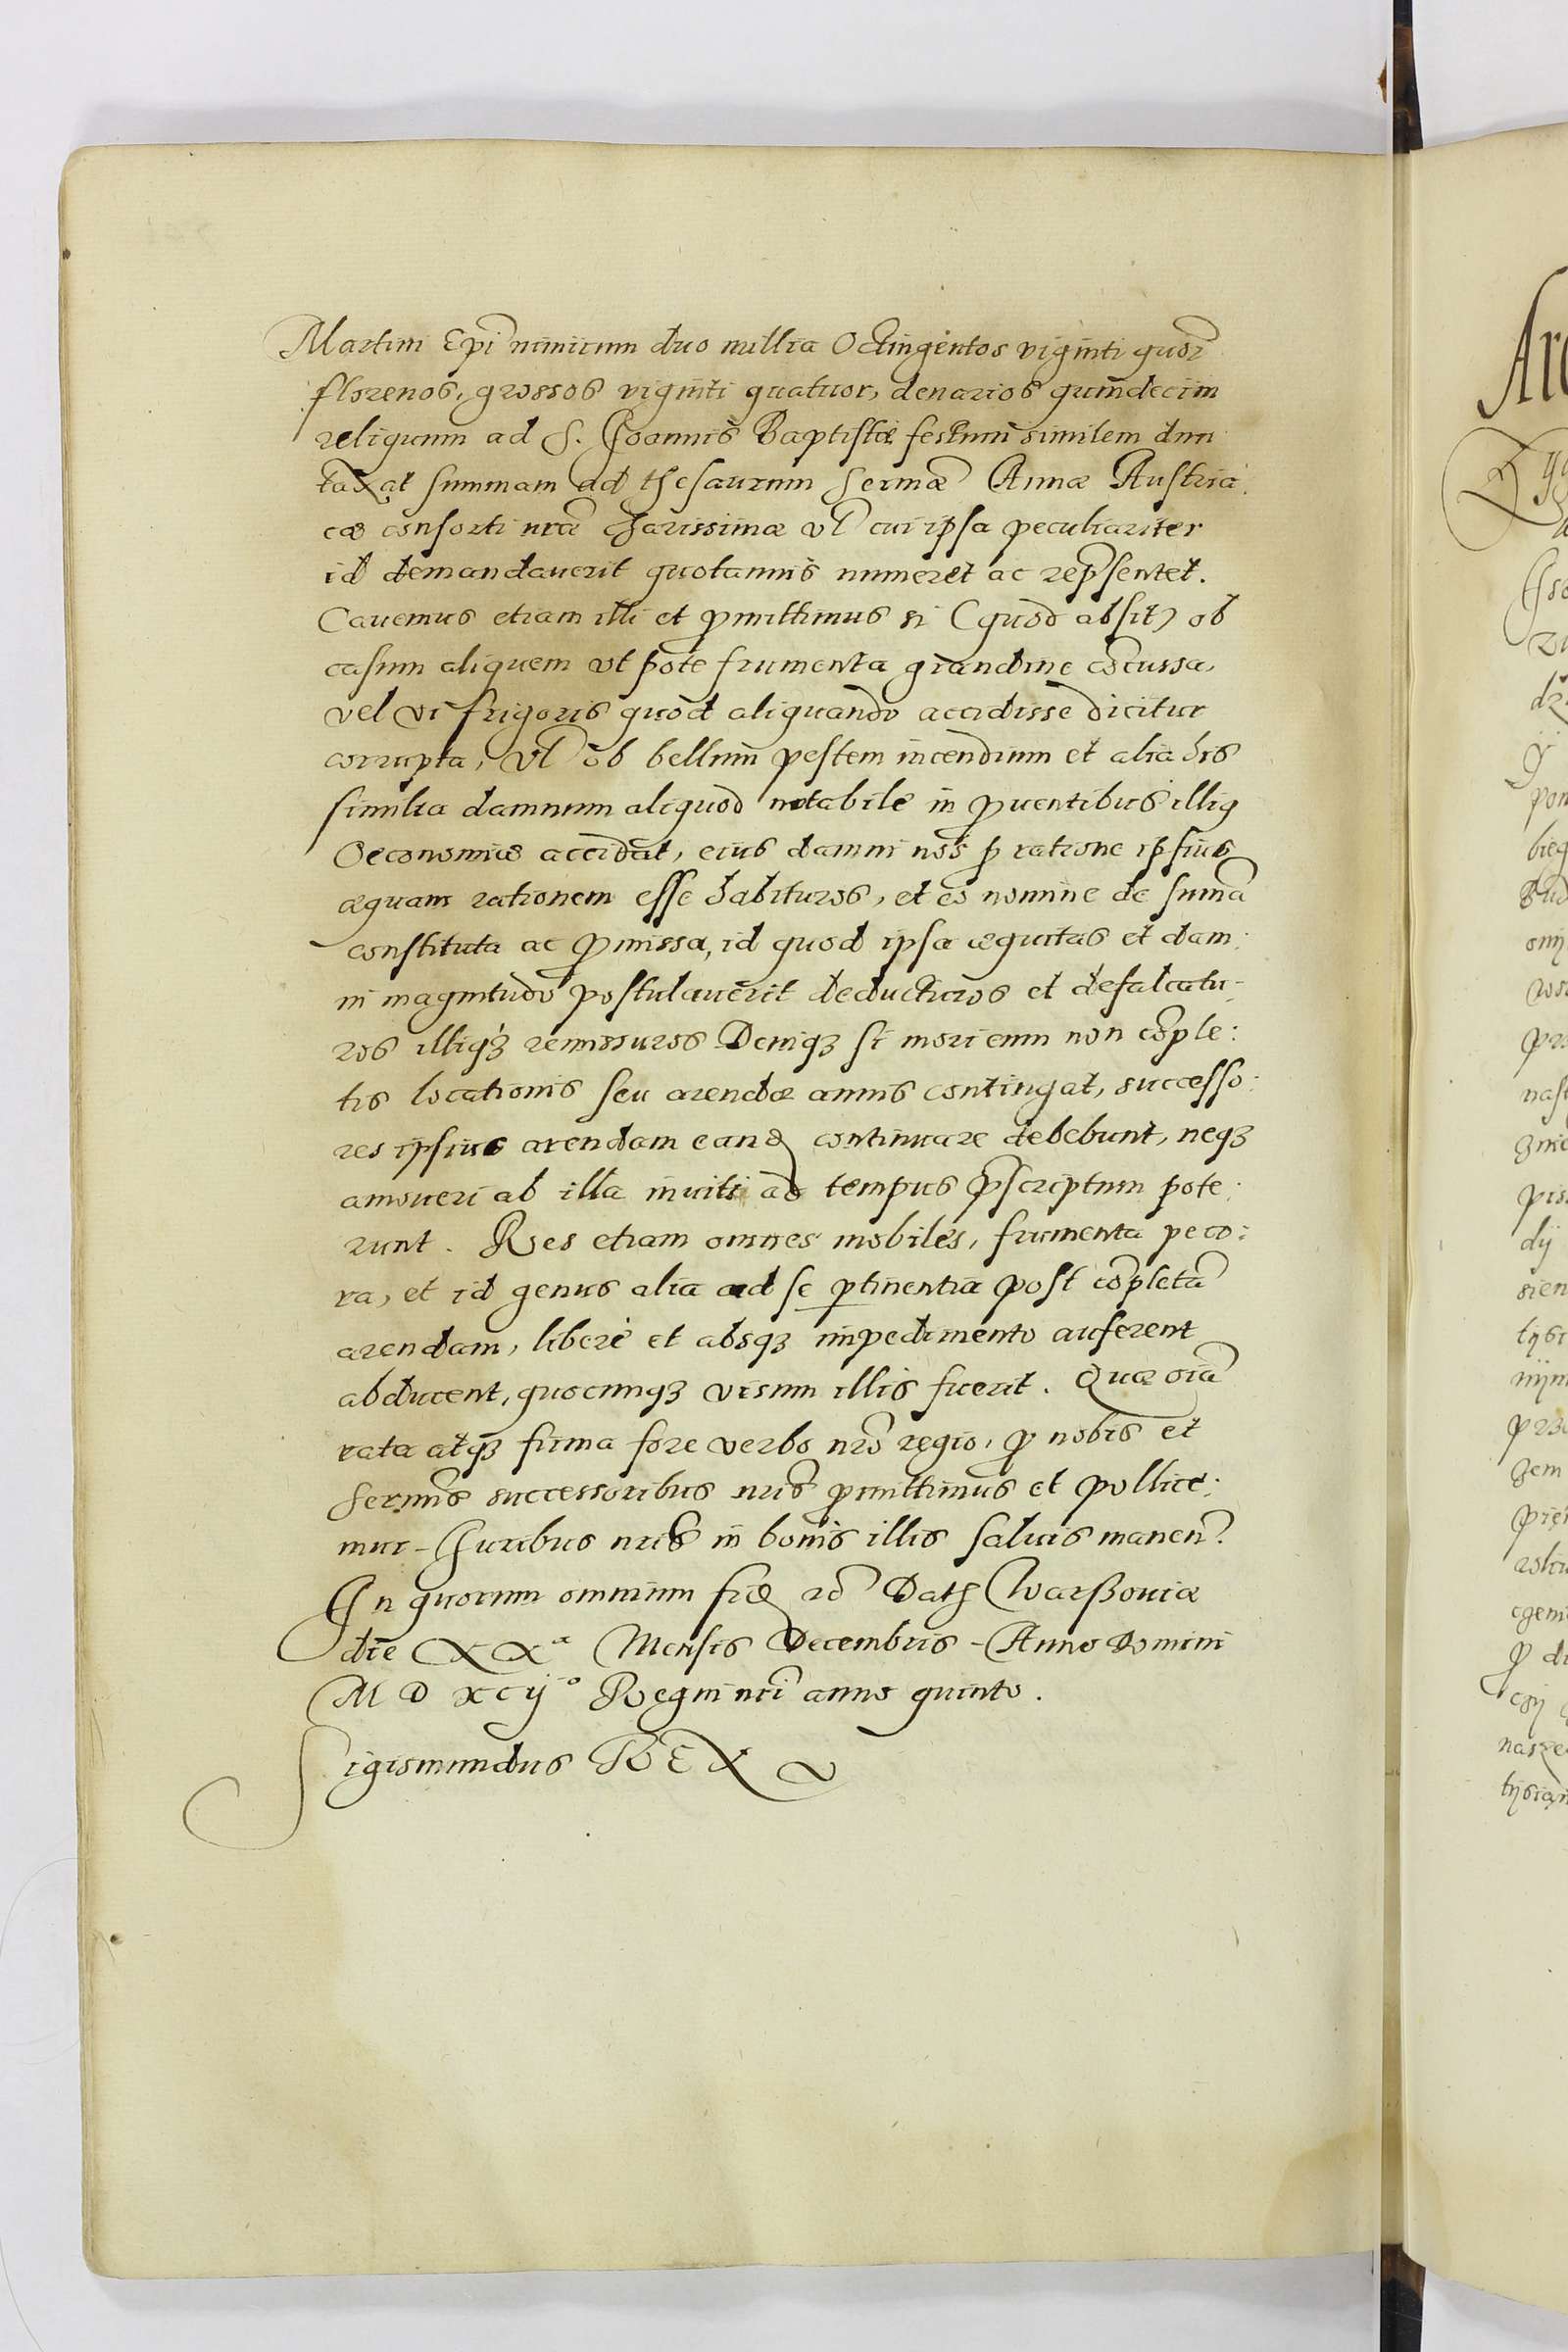 Martini Epi nimirum duo millia Octingentos viginti quor
florenos, grossos viginti quatuor, denarios quindecim
reliquum ad S. Joannis Baptistæ festum similem dun
taxat summam ad thesaurum Sermæ Annæ Austria
cæ consorti nræ charissimæ vl cui ipsa peculiariter
id demandauerit quotannis numeret ac repsentet.
Cavemus etiam illi et pmittimus si (quod absit) ob
casum aliquem ut pote frumenta grandine cocussa,
vel vi frigoris quod aliquando accidisse dicitur
corrupta, vl ob bellum pestem incendium et alia his
similia damnum aliquod notabile in puentibus illiq
Oeconomiæ accidat, eius damni nos p ratione ipsius
æquam rationem esse habituros, et eo nomine de suma
constituta ac pmissa, id quod ipsa æquitas et dam:
ni magnitudo postulauerit deducturos et defalcatu-
ros illiqȝ remissuros Deniqȝ si mori eum non cople:
tis locationis seu arendæ annis contingat, successo:
res ipsius arendam eand continuare debebunt, neqȝ
amoueri ab illa inuiti ad tempus pscriptum pote:
runt. Res etiam omnes mobiles, frumenta peco:
ra, et id genus alia ad se ptinentia post copleta
arendam, libere et absqȝ impedimento auferent
abducent, quocunqȝ visum illis fuerit. Quæ oia
rata atqȝ firma fore verbo nro regio, p nobis et
Sermis successoribus nris pmittimus et pollice:
mur - Juribus nris in bonis illis saluis manen.
In quorum omnium fid rc Dat Warssouiæ
die XXa Mensis Decembris - Anno Domini
M D XC ijo Regni nri anno quinto.
Sigismundus REX